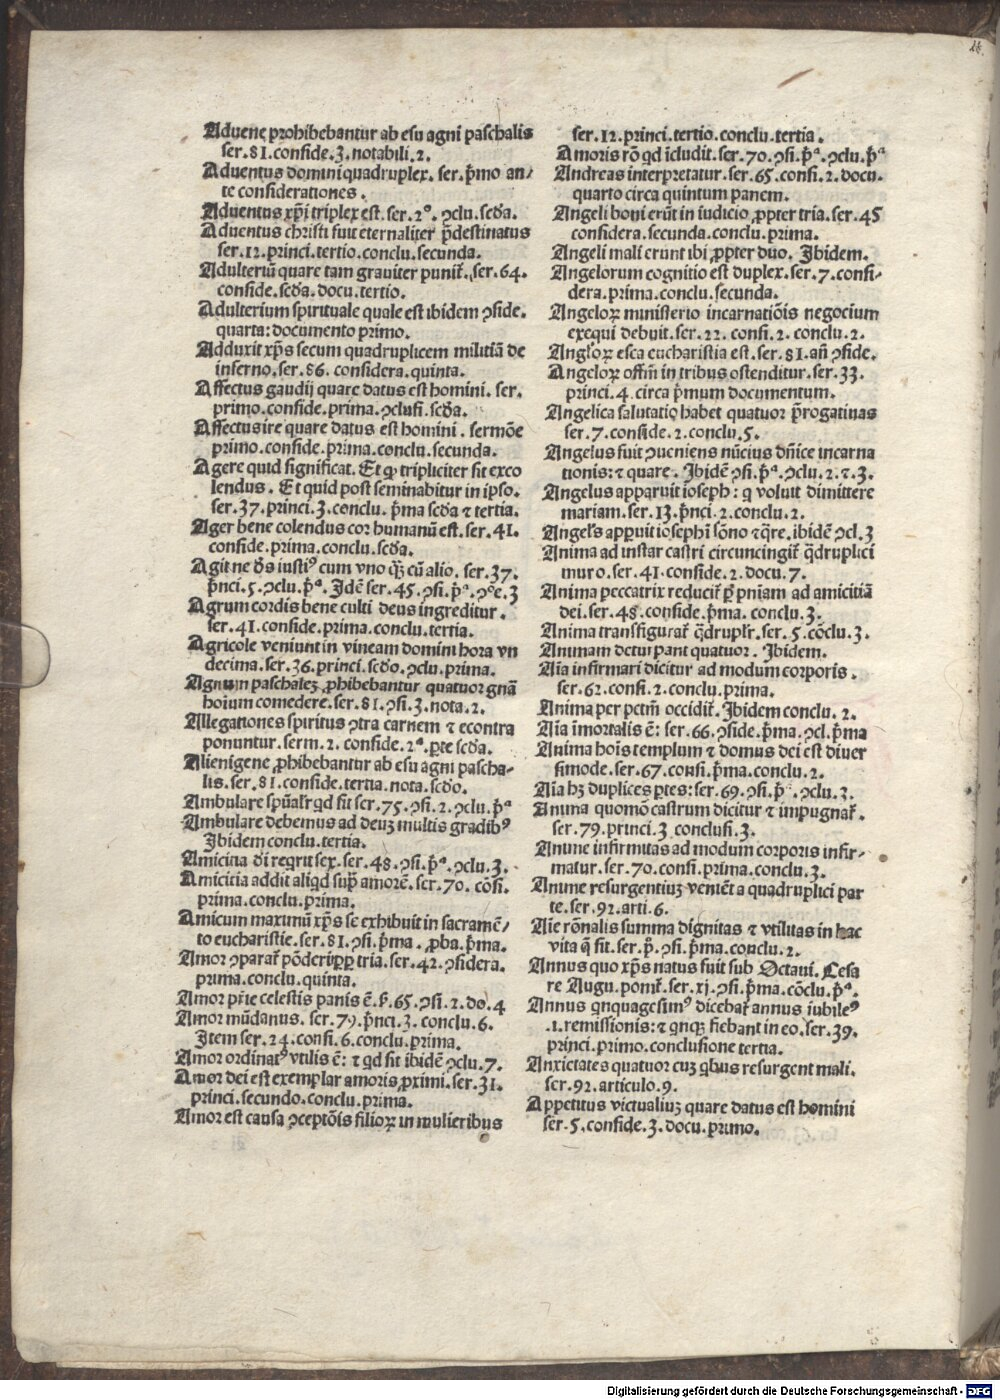 Aduene prohibebantur ab esu agni paschalis
ser.81.conside.3.notabili.2.
Aduentus domini quadruplex. ser.p̄mo an/
te considerationes.
Aduentus xp̄i triplex est.ser.2°.ꝯclu.scd̄a.
Aduentus christi fuit eternaliter p̄destinatus
ser.12.princi.tertio.conclu.secunda.
Adulteriū quare tam grauiter punit̄.ser.64.
conside.scd̄a.docu.tertio.
Adulterium spirituale quale est ibidem ꝯside.
quarta:documento primo.
Adduxit xp̄s secum quadruplicem militiā de
inferno.ser.86.considera.quinta.
Affectus gaudij quare datus est homini.ser.
primo.conside.prima.ꝯclusi.scd̄a.
Affectus ire quare datus est homini.sermōe
primo.conside.prima.conclu.secunda.
Agere quid significat. Et ꝙ tripliciter sit exco
lendus. Et quid post seminabitur in ipso.
ser.37.princi.3.conclu.p̄ma scd̄a ⁊ tertia.
Ager bene colendus cor humanū est.ser.41.
conside.prima.conclu.scd̄a.
Agit ne d̄s iustiꝰ cum vno qꝫ̄ cū alio.ser.37.
p̄nci.5.ꝯclu.p̄ª. Idē ser.45.ꝯsi.p̄ª.ꝯͨe.3
Agrum cordis bene culti deus ingreditur.
ser.41.conside.prima.conclu.tertia.
Agricole veniunt in vineam domini hora vn
decima.ser.36.princi.scd̄o.ꝯclu.prima.
Agnum paschaleꝫ ꝓhibebantur quatuor gn̄a
hoīum comedere.ser.81.ꝯsi.3.nota.2.
Allegationes spiritus ꝯtra carnem ⁊ econtra
ponuntur.serm.2.conside.2ª.ꝑte scd̄a.
Alienigene ꝓhibebantur ab esu agni pascha-
lis.ser.81.conside.tertia.nota.scd̄o.
Ambulare spūalr̄ qd sit ser.75.ꝯsi.2.ꝯclu.p̄ª
Ambulare debemus ad deuꝫ multis gradibꝰ
Ibidem conclu.tertia.
Amicitia di reqrit sex.ser.48.ꝯsi.p̄ª.ꝯclu.3.
Amicitia addit aliqd sup̄ amorē.ser.70.cōsi.
prima.conclu.prima.
Amicum maximū xp̄s se exhibuit in sacramē/
to eucharistie.ser.81.ꝯsi.p̄ma.ꝓba.p̄ma.
Amor ꝯparat̄ pōderi ꝓp̄ tria.ser.42.ꝯsidera.
prima.conclu.quinta.
Amor pr̄ie celestis panis ē.ẜ.65.ꝯsi.2.do.4
Amor mūdanus. ser.79.p̄nci.3.conclu.6.
Item ser.24.consi.6.conclu.prima.
Amor ordinatꝰ vtilis ē: ⁊ qd sit ibidē ꝯclu.7.
Amor dei est exemplar amoris ꝓximi.ser.31.
princi.secundo.conclu.prima.
Amor est causa ꝯceptōis filioꝝ in mulieribus
ser.12.princi.tertio.conclu.tertia.
Amoris rō qd īcludit.ser.70.ꝯsi.p̄ª.ꝯclu.p̄ª
Andreas interpretatur.ser.65.consi.2.docu.
quarto circa quintum panem.
Angeli boni erūt in iudicio ꝓpter tria.ser.45
considera.secunda.conclu.prima.
Angeli mali erunt ibi ꝓpter duo. Ibidem.
Angelorum cognitio est duplex.ser.7.consi-
dera.prima.conclu.secunda.
Angeloꝝ ministerio incarnatiōis negocium
exequi debuit.ser.22.consi.2.conclu.2.
Angl̄oꝝ esca eucharistia est.ser.81.an̄ ꝯside.
Angeloꝝ offm̄ in tribus ostenditur.ser.33.
princi.4.circa p̄mum documentum.
Angelica salutatio habet quatuor p̄rogatiuas
ser.7.conside.2.conclu.5.
Angelus fuit ꝯueniens nūcius dn̄ice incarna
tionis:⁊ quare. Ibidē ꝯsi.p̄ª.ꝯclu.2.⁊.3.
Angelus apparuit ioseph: q voluit dimittere
mariam.ser.13.p̄nci.2.conclu.2.
Angel̄s apꝑuit ioseph ī sōno ⁊ q̄re.ibidē ꝯcl.3
Anima ad instar castri circuncingit̄ q̄druplici
muro.ser.41.conside.2.docu.7.
Anima peccatrix reducit̄ ꝑ pn̄iam ad amicitiā
dei.ser.48.conside.p̄ma.conclu.3.
Anima transfigurat̄ q̄druplr̄.ser.5.cōclu.3.
Animam deturpant quatuor. Ibidem.
Aīa infirmari dicitur ad modum corporis.
ser.62.consi.2.conclu.prima.
Anima per pctm̄ occidit̄. Ibidem conclu.2.
Aīa īmortalis ē: ser.66.ꝯside.p̄ma.ꝯcl.p̄ma
Anima hoīs templum ⁊ domus dei est diuer
simode.ser.67.consi.p̄ma.conclu.2.
Aīa hꝫ duplices ꝑtes:ser.69.ꝯsi.p̄ª.ꝯclu.3.
Anima quomō castrum dicitur ⁊ impugnat̄.
ser.79.princi.3 conclusi.3.
Anime infirmitas ad modum corporis infir-
matur.ser.70.consi.prima.conclu.3.
Anime resurgentiuꝫ veniēt a quadruplici par
te.ser.92.arti.6.
Aīe rōnalis summa dignitas ⁊ vtilitas in hac
vita q̄ sit.ser.p̄.ꝯsi.p̄ma.conclu.2.
Annus quo xp̄s natus fuit sub Octaui. Cesa
re Augu.ponit̄.ser.xj.ꝯsi.p̄ma.cōclu.p̄ª.
Annus qnquagesimꝰ dicebat̄ annus iubileꝰ
.i.remissionis:⁊ qnqꝫ fiebant in eo.ser.39.
princi.primo.conclusione tertia.
Anxietates quatuor cuꝫ qbus resurgent mali.
ser.92.articulo.9.
Appetitus victualiuꝫ quare datus est homini
ser.5.conside.3.docu.primo.
Digitalisierung gefördert durch die Deutsche Forschungsgemeinschaft - DFG